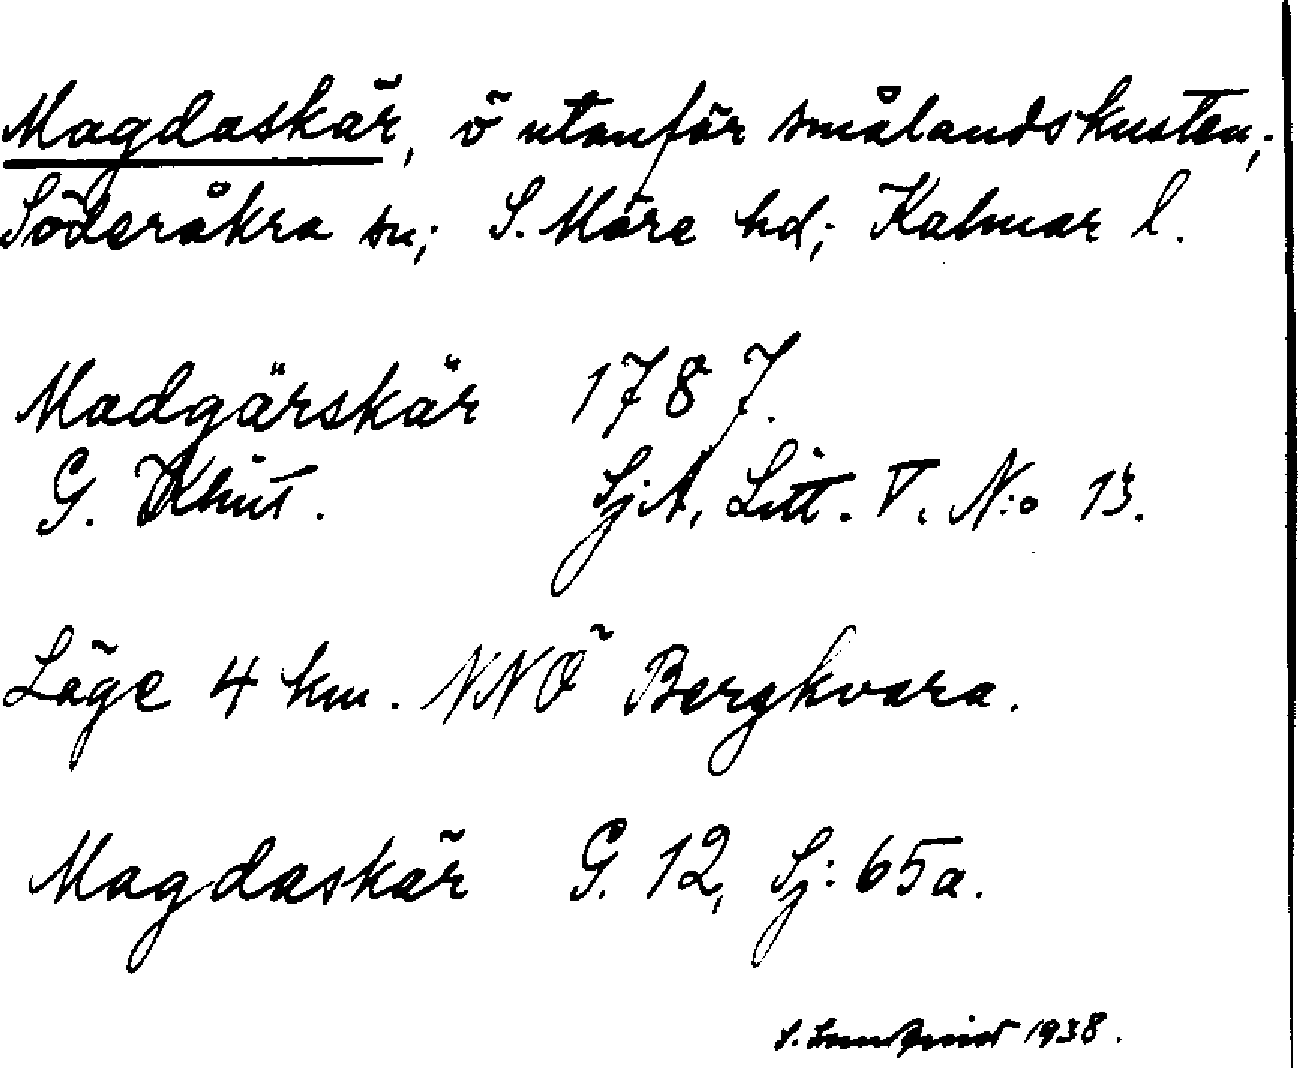 Magdaskär, ö utanför smålandskusten;
Söderåkra sn; S. Möre hd; Kalmar l.
Madgärskär 1787.
G. Klint. SjA, Litt. V. N:o 13.
Läge 4 km. NNÖ Bergkvara.
Magdaskär G. 12, Sj: 65a.
S. 1938.